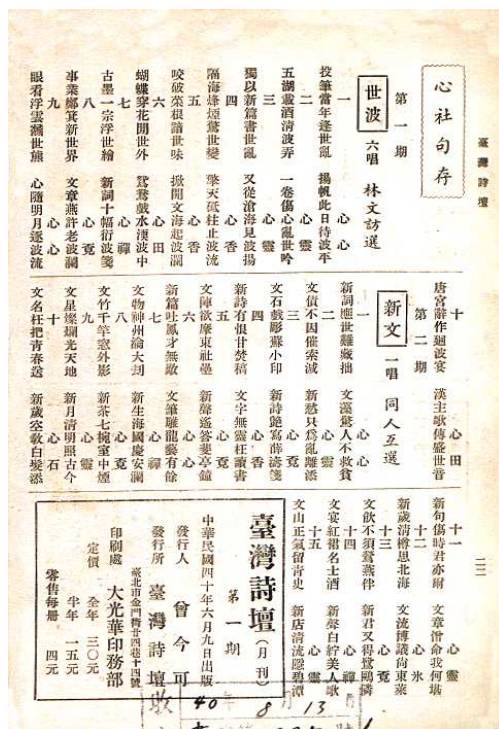 臺灣詩壇
心社句存
第一期
世波 六唱 林文訪選
一 心心
投筆當年逢世亂 揚帆此日待波平
二 心靈
五湖載酒清波弄 一卷傷心亂世吟
三 心靈
獨以新篇書世亂 又從滄海見波揚
四 心香
隔海烽煙驚世變 擎天砥柱止波流
五 心香
咬破菜根諳世味 掀開文海起波瀾
六 心田
蝴蝶穿花閒世外 鴛鴦戲水 波中
七 心禪
古墨一宗浮世繪 新詞十幅衍波箋
八 心寬
事業 箕新世界 文章燕許老波瀾
九 心心
眼看浮雲 世態 心隨明月逐波流
十 心田
唐宮辭作迴波宴 漢主歌傳盛世音
第二期
新文 一唱 同人互選
一 心心
新詞應世難藏拙 文藻驚人不救貧
二 心靈
文債不因催索減 新愁只為亂離添
三 心寬
文石戲彫蘇小印 新詩艷寫薛濤箋
四 心香
新詩有恨甘焚稿 文字無靈枉讀書
五 心寬
文陣欲摩東社壘 新聲遙答斐亭鐘
六 心心
新篇吐鳳才無敵 文筆雕龍藝有餘
七 心禪
文物神州淪大刧 新生海國慶安瀾
八 心寬
文竹千竿窓外影 新茶七椀室中煙
九 心靈
文星燦爛光天地 新月清明照古今
十 心石
文名枉把青春送 新歲空教白髮添
十一 心靈
新句傷時君亦爾 文章憎命我何堪
十二 心氷
新歲清樽思北海 文流博議向東萊
十三 心寬
文飲不須鶯燕伴 新君又得鷺鷗隣
十四 心禪
文宴紅裙名士酒 新聲白紵美人歌
十五 心靈
文山正氣留青史 新店清流隱碧潭
二二
臺灣詩壇（月刊）
第一期
中華民國四十年六月九日出版
發行人 曾今可
發行所 臺灣詩壇
臺北市金門街廿四巷十四號
印刷處 大光華印務部
定價 全年 三〇元
半年 一五元
零售每冊 四元
40年 8月 13